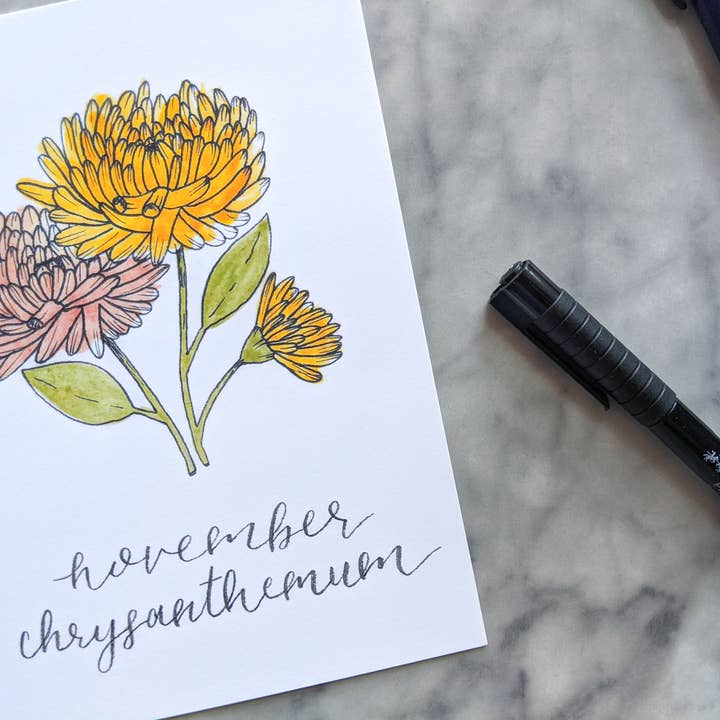 november
chrysanthemum